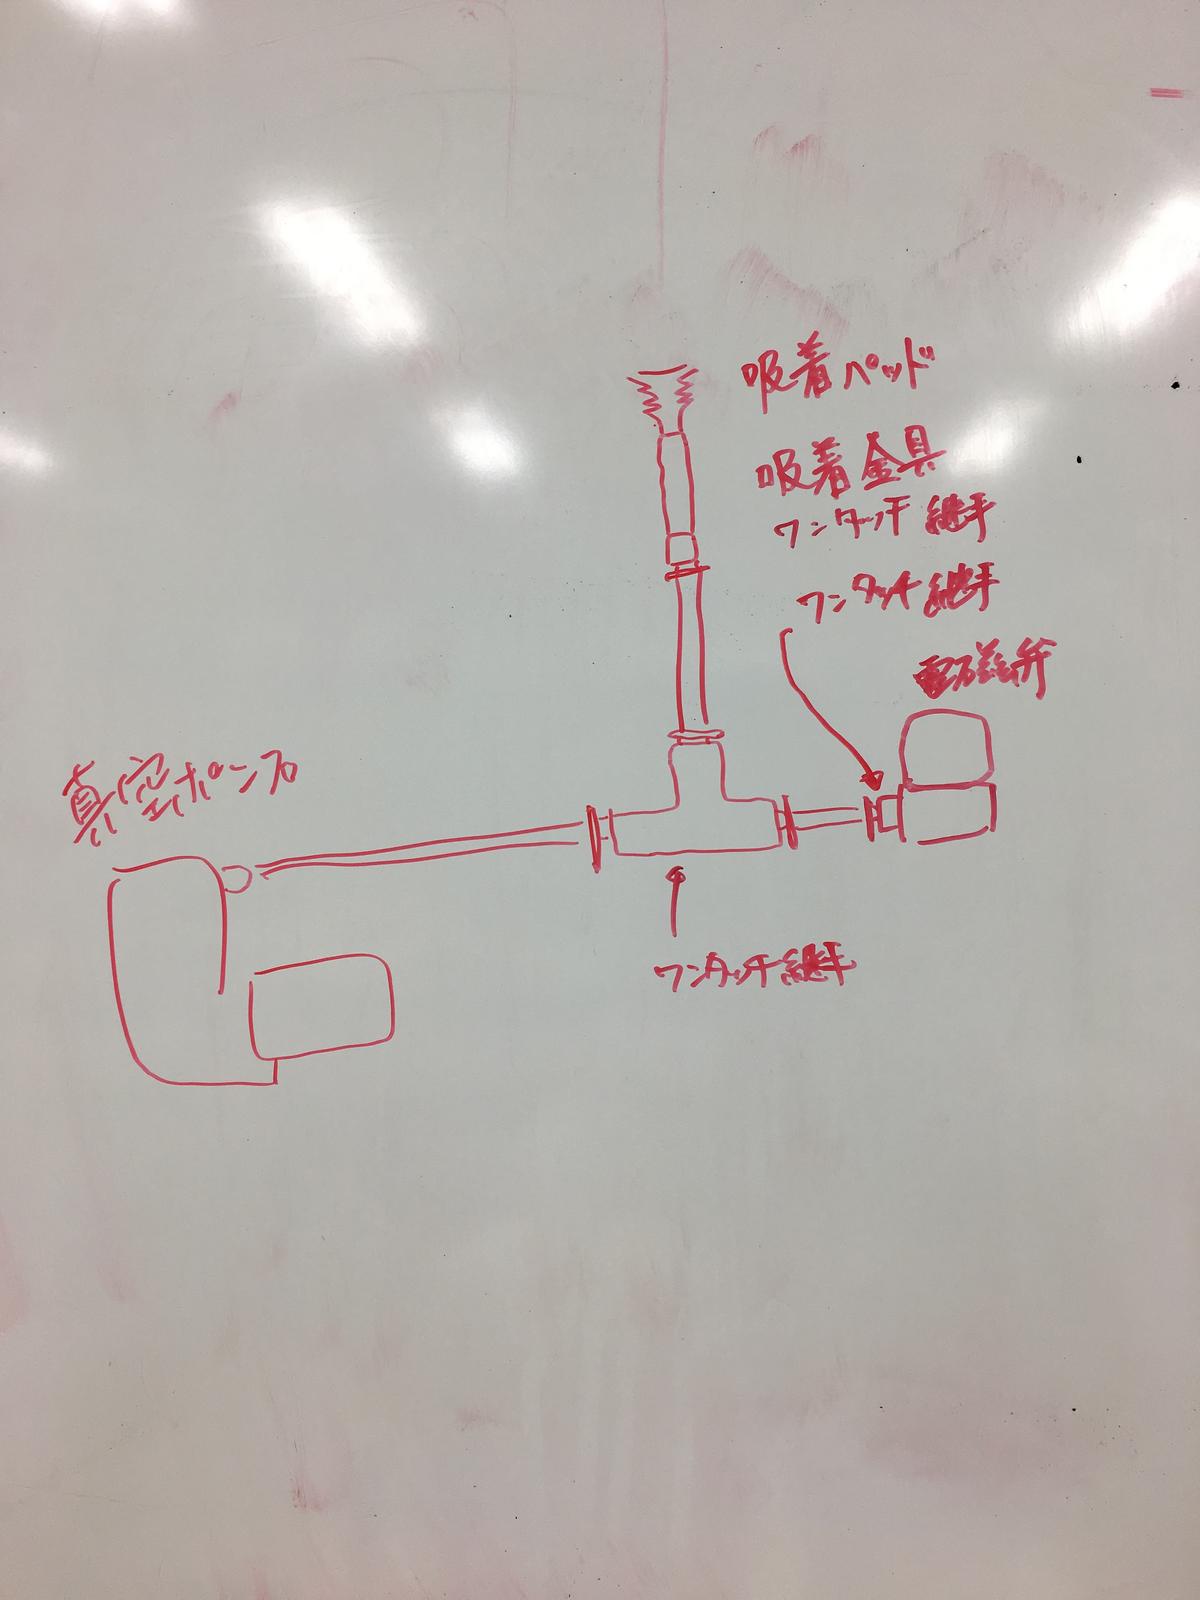 吸着パッド
吸着金具
ワンタッチ継手
ワンタッチ継手
電磁弁
真空ポンプ
ワンタッチ継手